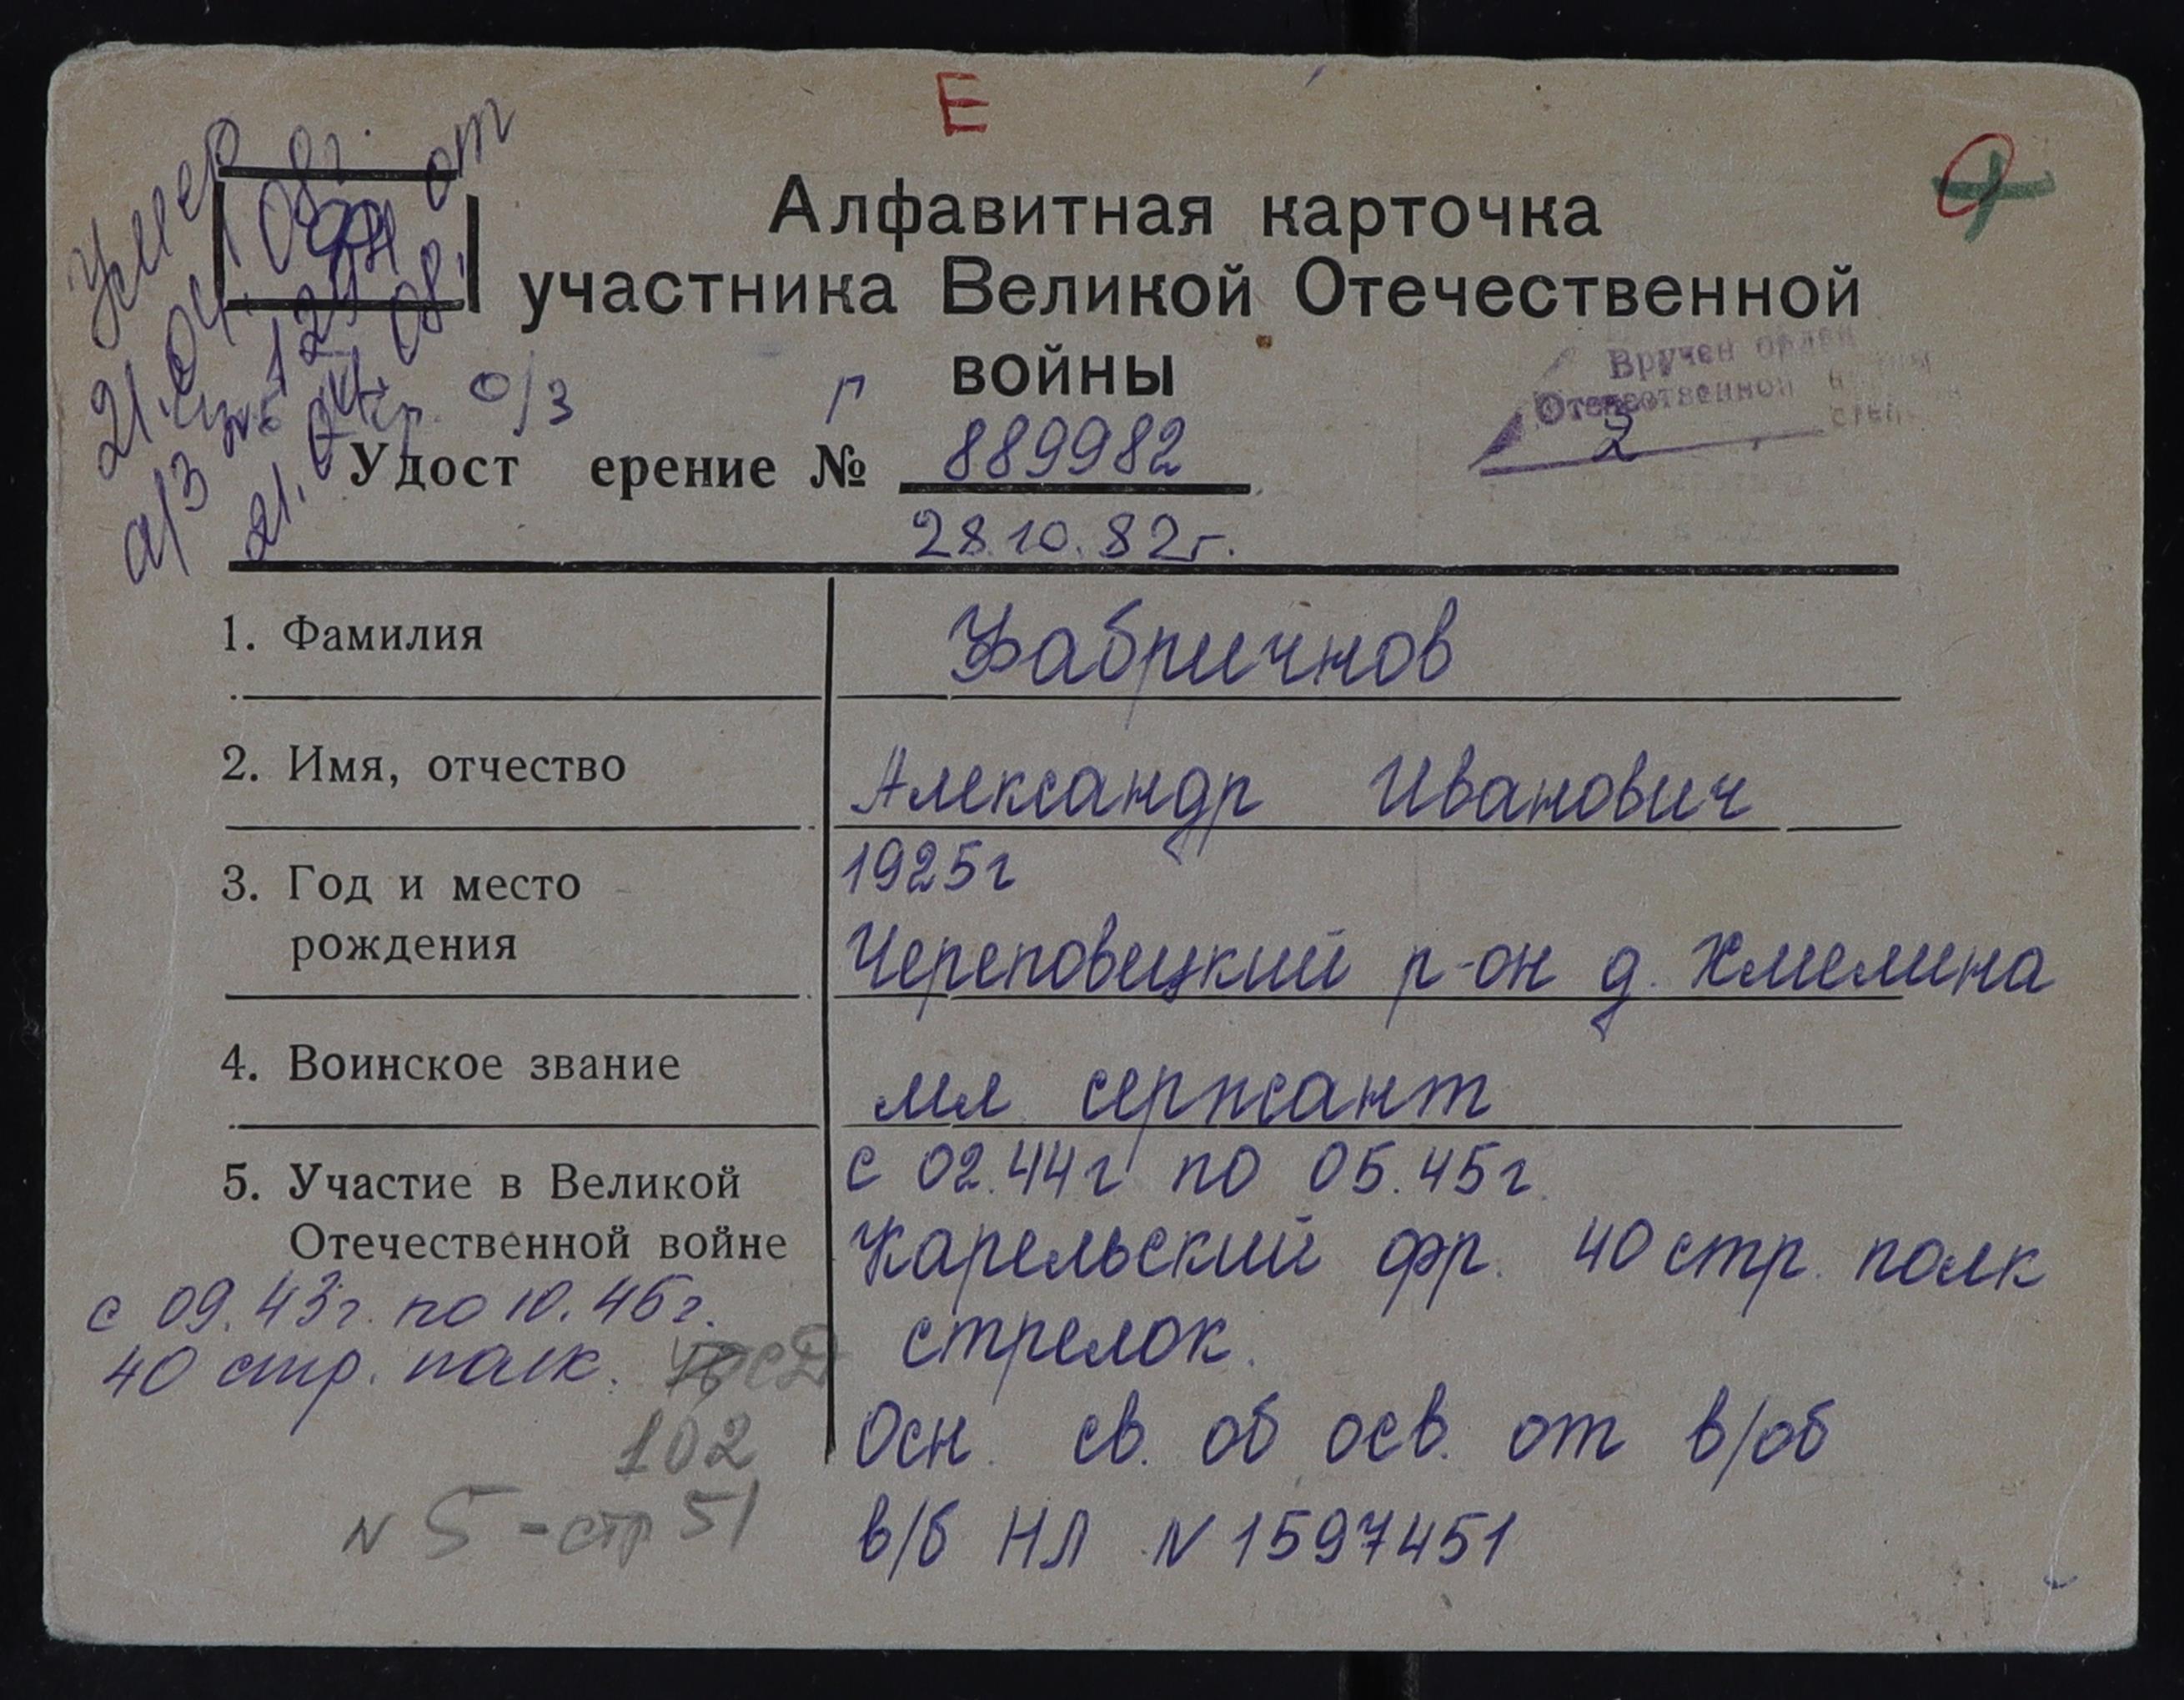 Е
Умер
21.04.08г.
а/з № 1294 от
21.04.08.
Алфавитная карточка
участника Великой Отечественной
войны
о/з
Г
Вручен орден
Отечественной войны
2 степени
Удост ерение № 889982
28.10.82г.
1. Фамилия Фабричнов
2. Имя, отчество Александр Иванович
3. Год и место 1925г
рождения Череповецкий р-он д. Хмелина
4. Воинское звание мл. сержант
5. Участие в Великой с 02.44г по 05.45г.
Отечественной войне Карельский фр. 40 стр. полк
с 09.43г. по 10.46г. стрелок.
40 стр. полк. СД
102 Осн. св. об осв. от в/об
N 5 - стр 51 в/б НЛ N 1597451